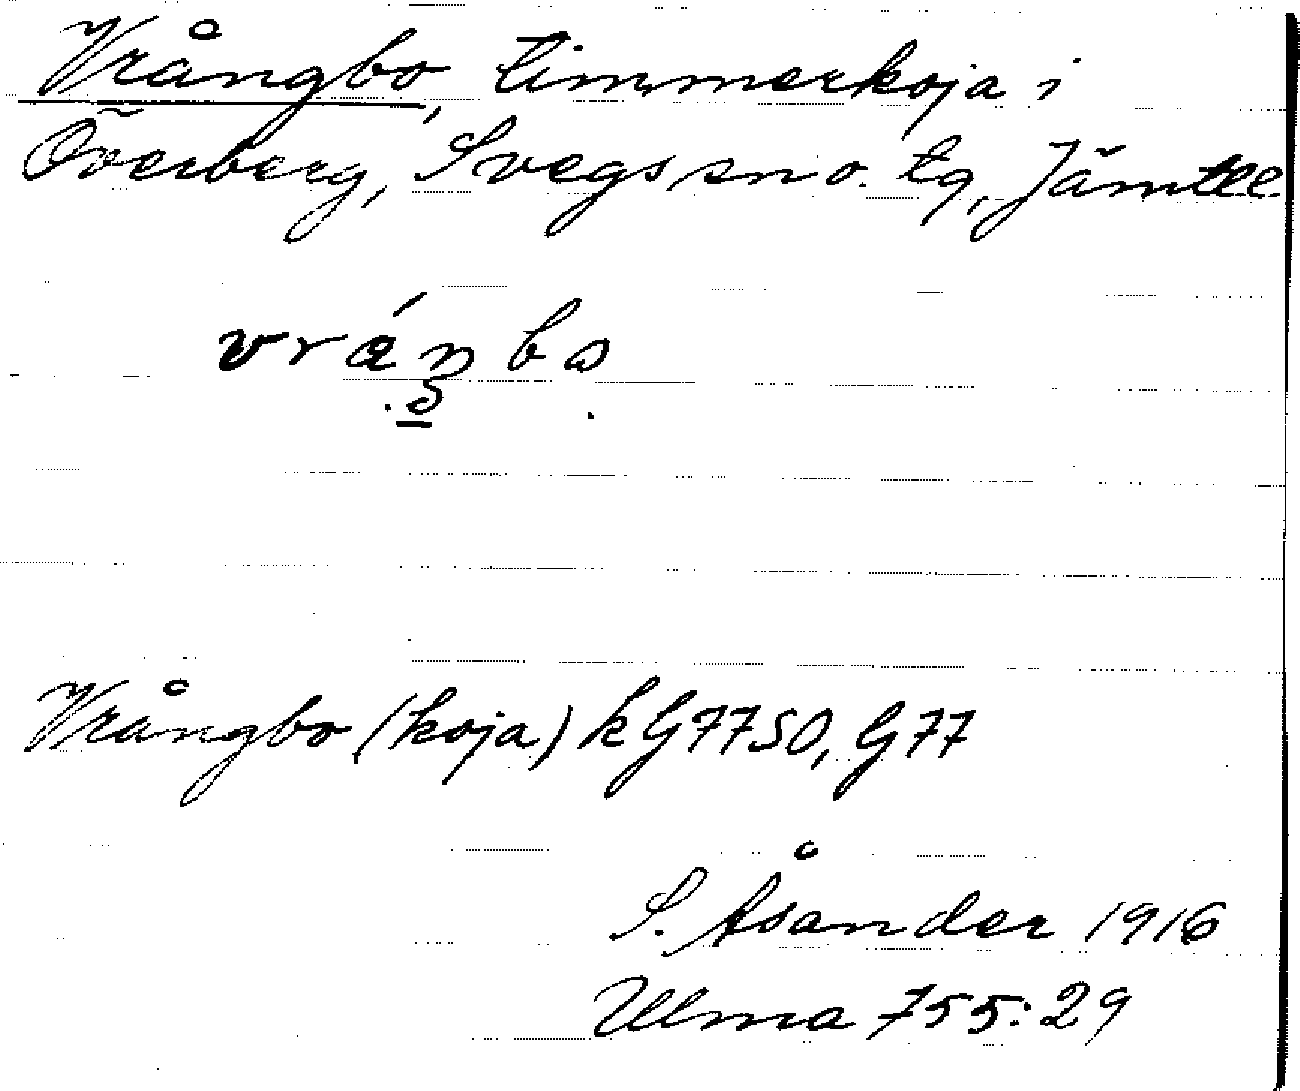 Vrångbo, timmerkoja i
Överberg, Svegs sn o. tg, Jämtll
Vrångbo (koja) k G7750, G77
S. Åsander 1916
Ulma 755:29